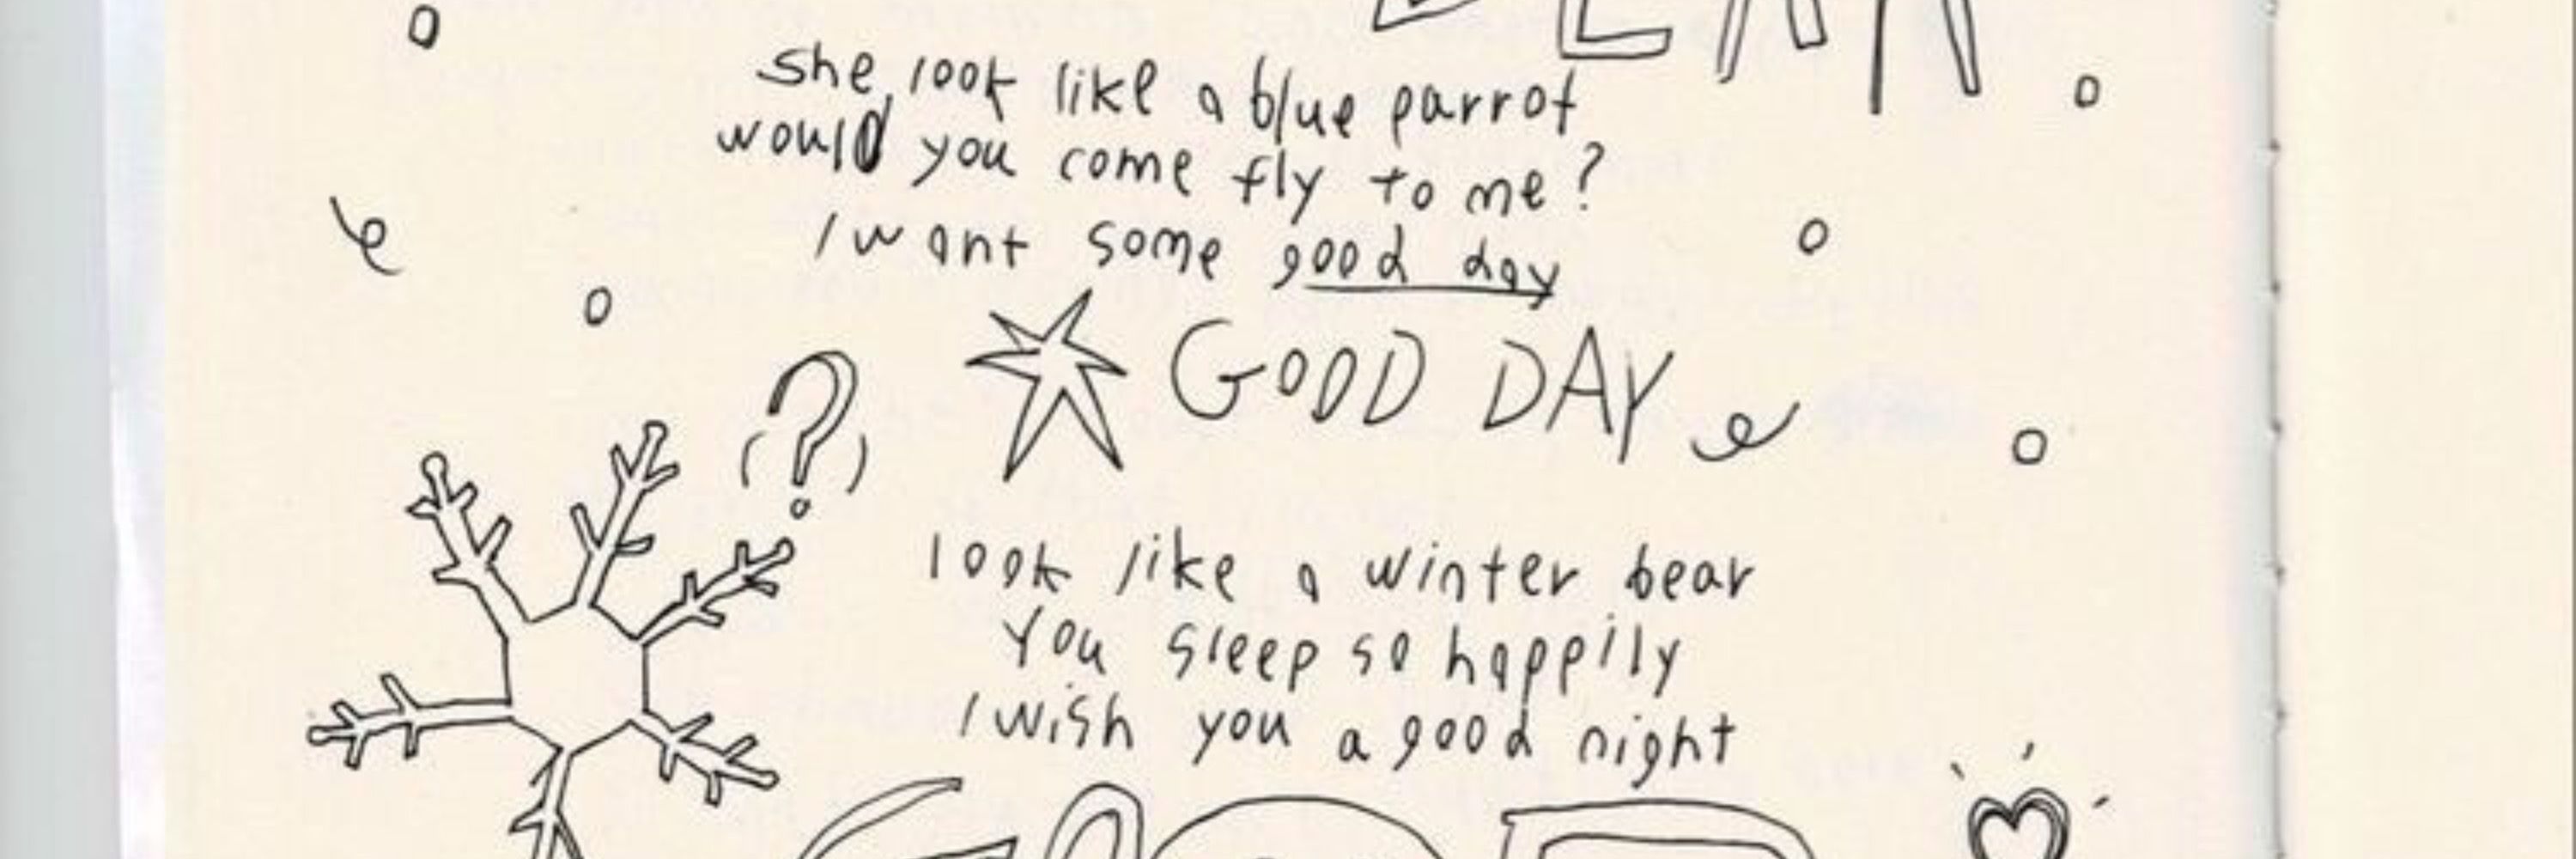 EAR
she look like a blue parrot
would you come fly to me?
I want some good day
GOOD DAY
(?)
look like a winter bear
You sleep so happily
I wish you a good night